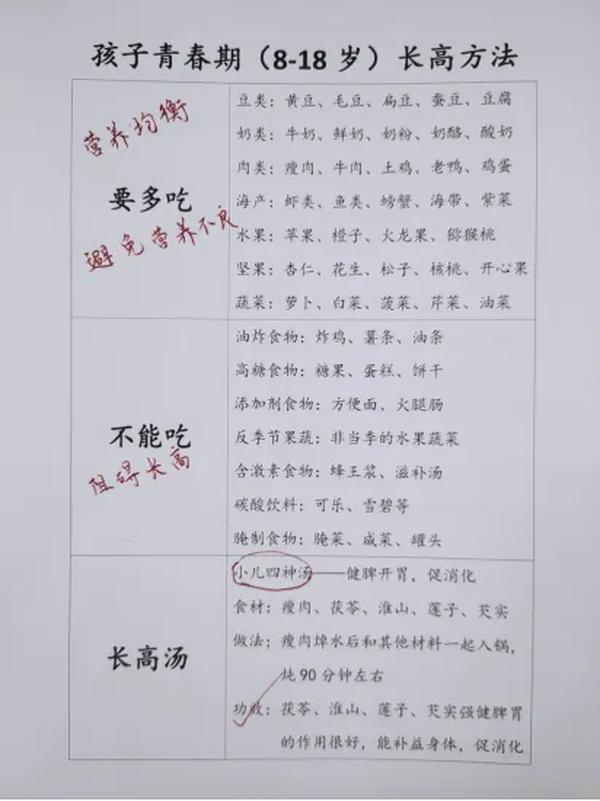 孩子青春期（8-18 岁）长高方法
营养均衡
要多吃
避免营养不良
豆类：黄豆、毛豆、扁豆、蚕豆、豆腐
奶类：牛奶、鲜奶、奶粉、奶酪、酸奶
肉类：瘦肉、牛肉、土鸡、老鸭、鸡蛋
海产：虾类、鱼类、螃蟹、海带、紫菜
水果：苹果、橙子、火龙果、猕猴桃
坚果：杏仁、花生、松子、核桃、开心果
蔬菜：萝卜、白菜、菠菜、芹菜、油菜
不能吃
阻碍长高
油炸食物：炸鸡、薯条、油条
高糖食物：糖果、蛋糕、饼干
添加剂食物：方便面、火腿肠
反季节果蔬：非当季的水果蔬菜
含激素食物：蜂王浆、滋补汤
碳酸饮料：可乐、雪碧等
腌制食物：腌菜、咸菜、罐头
长高汤
小儿四神汤——健脾开胃，促消化
食材：瘦肉、茯苓、淮山、莲子、芡实
做法；瘦肉焯水后和其他材料一起入锅，
炖 90 分钟左右
功效：茯苓、淮山、莲子、芡实强健脾胃
的作用很好，能补益身体，促消化